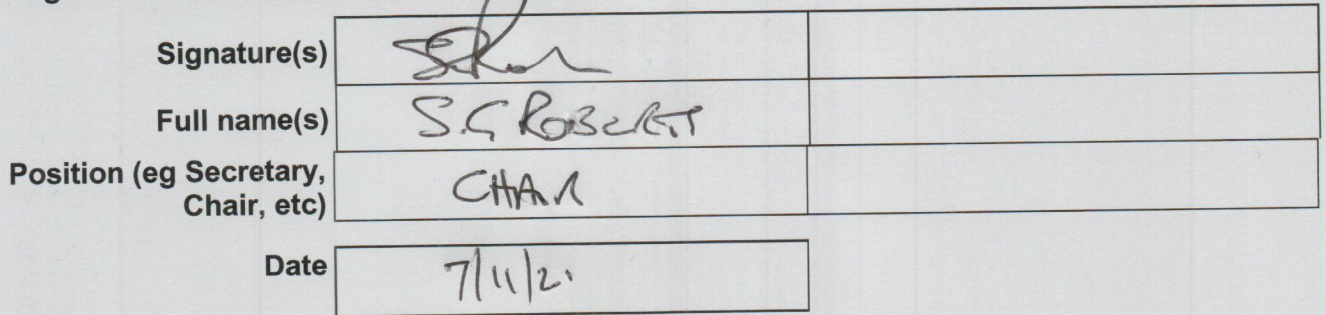 Signature(s)
Full name(s) S.G ROBERT
Position (eg Secretary,
Chair, etc) CHAIR
Date 7/11/21